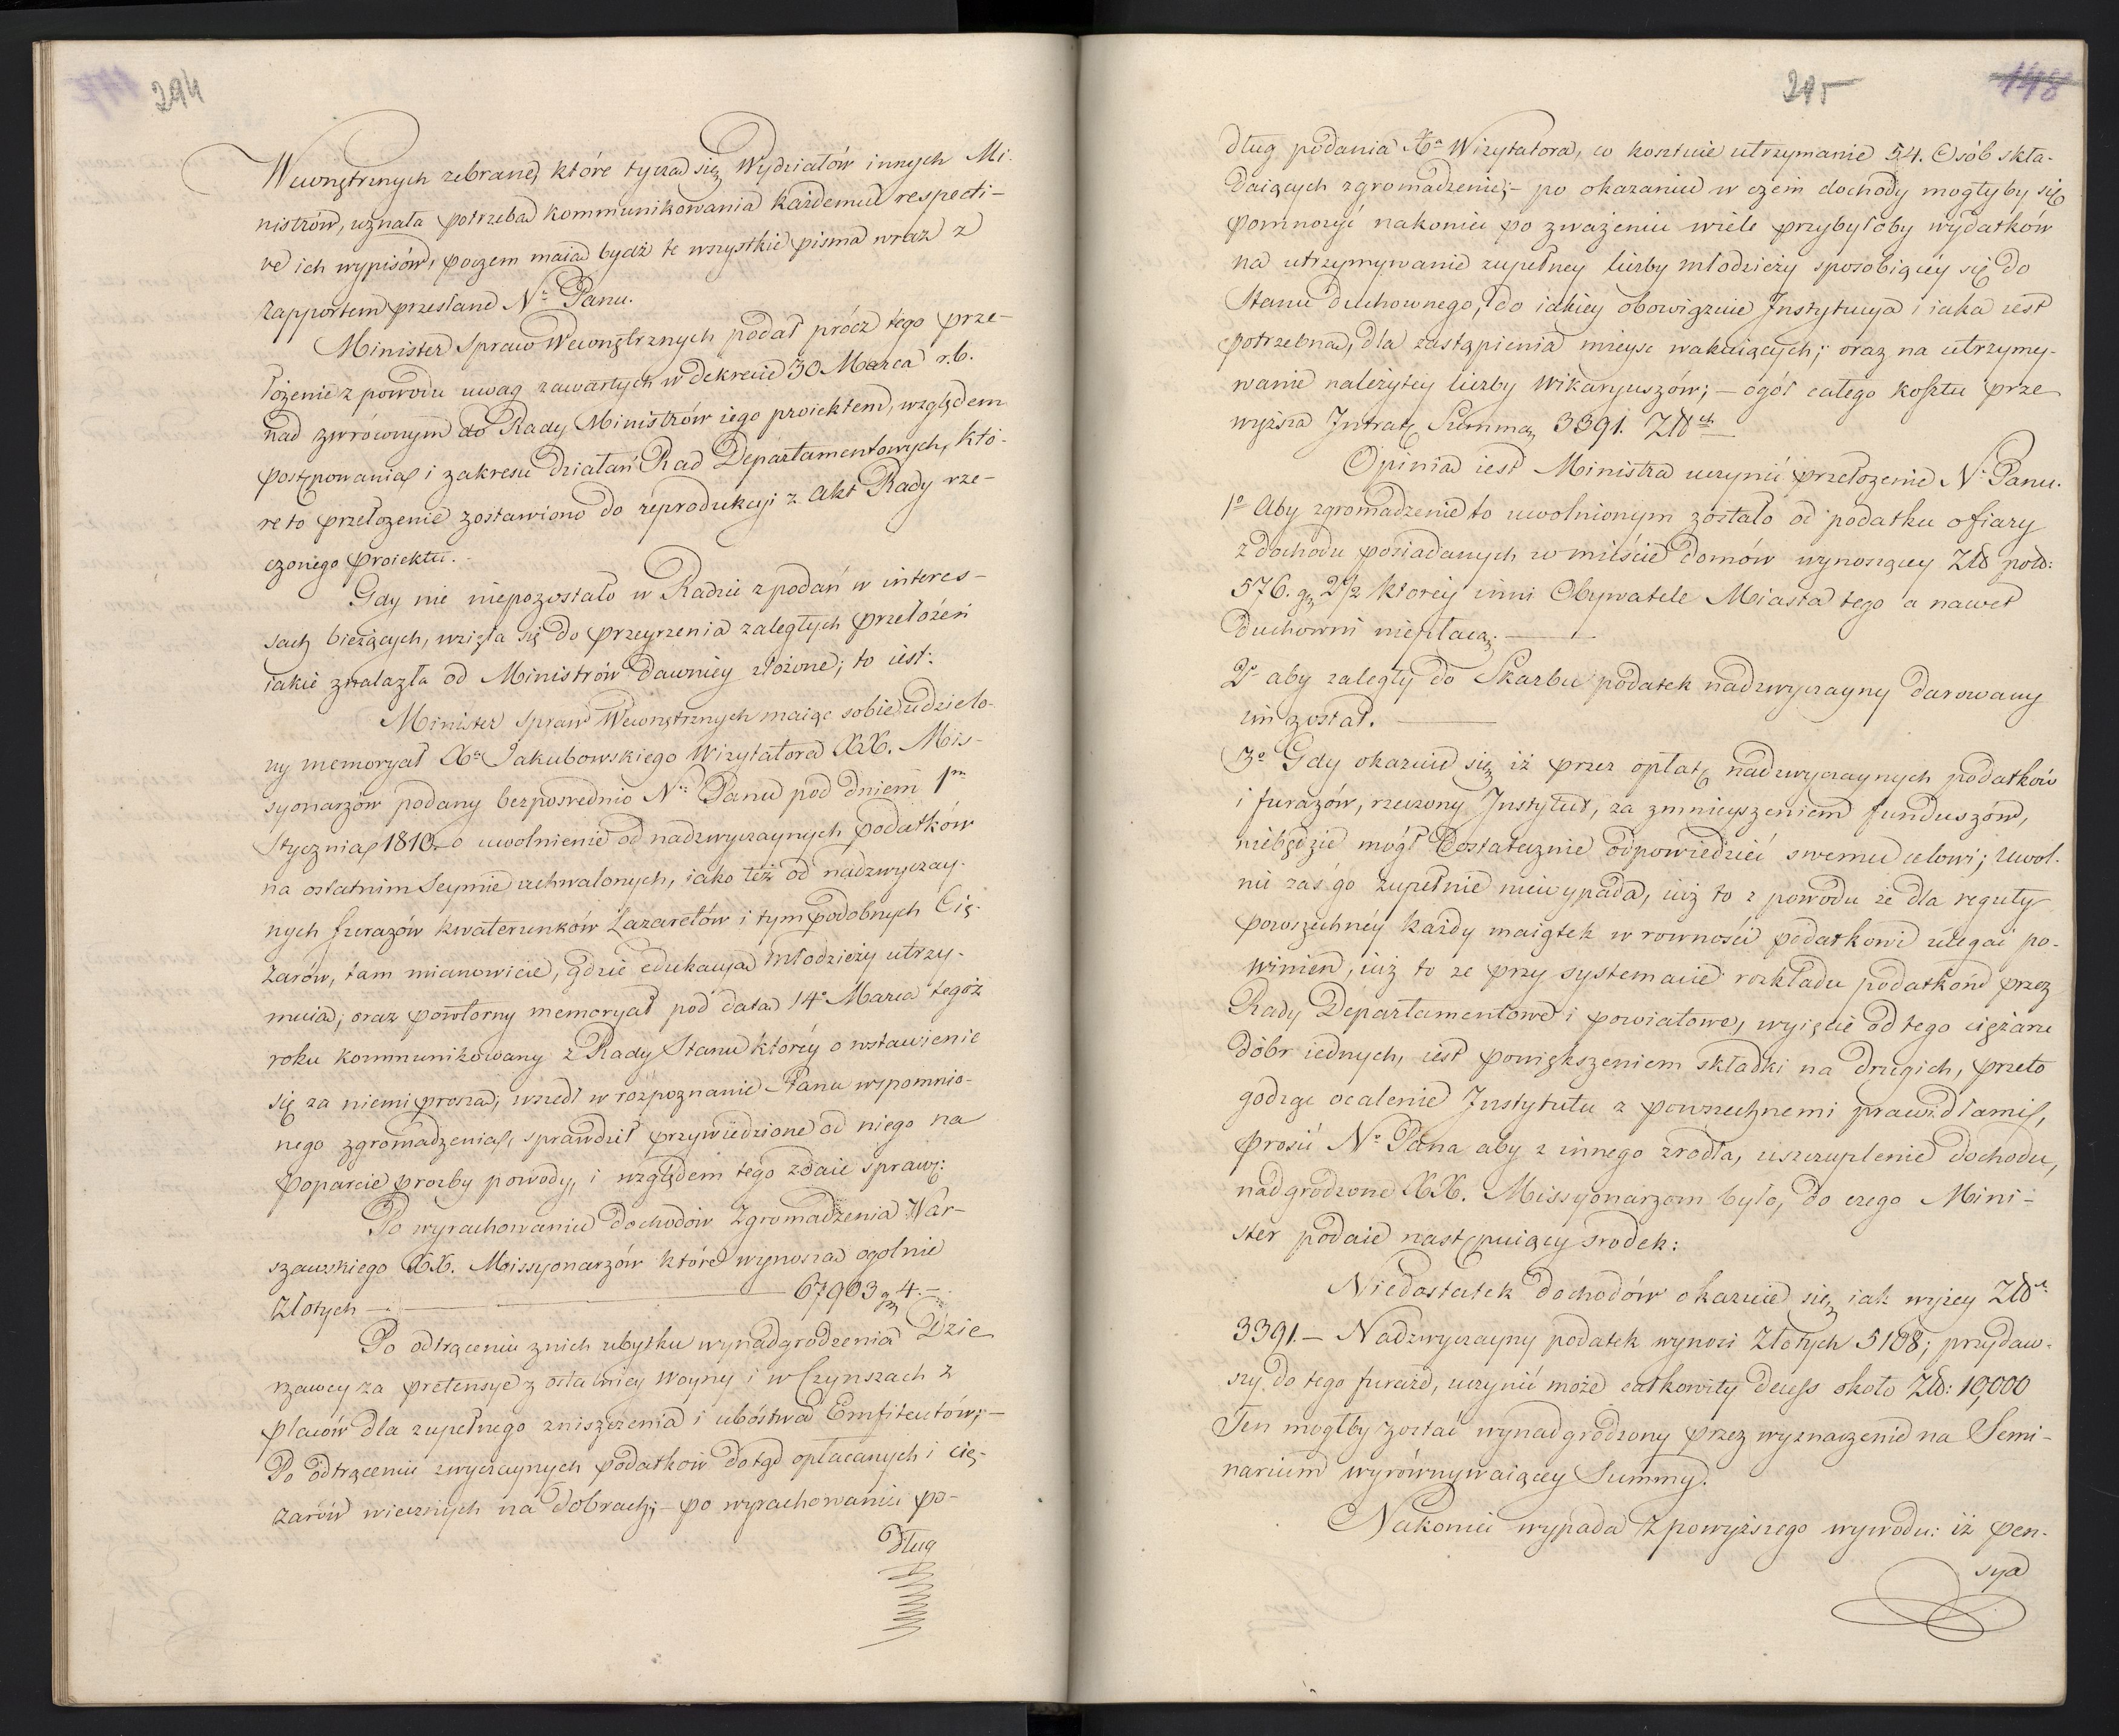 294
Wewnętrznych zebrane, które tyczą się Wydziałów innych Mi-
nistrów, uznała potrzebą kommunikowania każdemu respecti-
ve ich wypisów, poczem maią bydź te wszystkie pisma wraz z
rapportem przesłane N. Panu.
Minister Spraw Wewnętrznych podał prócz tego prze-
łożenie z powodu uwag zawartych w dekrecie 30 Marca r.b.
nad zwróconym do Rady Ministrów iego proiektem, względem
postępowania i zakresu działań Rad Departamentowych, któ-
re to przełożenie zostawiono do reprodukcyi z Akt Rady rze-
czonego proiektu.
Gdy nic niepozostało w Radzie z podań w interes-
sach bieżących, wzięła się do przeyrzenia zaległych przełożeń
iakie znalazła od Ministrów dawniey złożone; to iest:
Minister Spraw Wewnętrznych maiąc sobie udzielo-
ny memoryał Xa Jakubowskiego Wizytatora XX. Mis-
syonarzów podany bezpośrednio N. Panu pod dniem 1m
Stycznia 1810 o uwolnienie od nadzwyczaynych podatków
na ostatnim Seymie uchwalonych, iako też od nadzwyczay-
nych furażów kwaterunków Lazaretów i tym podobnych Cię-
żarów, tam mianowicie, gdzie edukacya Młodzieży utrzy-
muią; oraz powtorny memoryał pod datą 14o Marca tegoż
roku kommunikowany z Rady Stanu którey o wstawienie
się za niemi proszą; wszedł w rozpoznanie Stanu wspomnio-
nego zgromadzenia, sprawdził przywiedzione od niego na
poparcie prozby powody, i względem tego zdaie sprawę:
Po wyrachowaniu dochodów Zgromadzenia War-
szawskiego XX. Missyonarzów które wynoszą ogolnie
Złotych — 67903 gr 4.—
Po odtrąceniu z nich ubytku wynadgrodzenia Dzie
rzawcy za pretensye z ostatniey Woyny i w Czynszach z
placów dla zupełnego zniszczenia i ubóstwa Emfiteutów;—
Po odtrąceniu zwyczaynych podatków dotąd opłacanych i cię-
żarów wiecznych na Dobrach;— po wyrachowaniu po-
dług
295
148
dług podania Xa Wizytatora, co kosztuie utrzymanie 54. Osób skła-
daiących zgromadzenie;— po okazaniu w czem dochody mogłyby się
pomnożyć nakoniec po zważeniu wiele przybyłoby wydatków
na utrzymywanie zupełney liczby młodzieży sposobiącéy się do
Stanu duchownego, do iakiey obowiązuie Instytucya i iaka iest
potrzebna, dla zastąpienia mieysc wakuiących; oraz na utrzymy-
wanie należytey liczby Wikaryuszów;— ogół całego kosztu prze
wyższa Intratę Summą 3391. Złłch
Opinią iest Ministra uczynić przełożenie N. Panu.
1o Aby zgromadzenie to uwolnionym zostało od podatku ofiary
z dochodu posiadanych w mieście domów wynoszącey Złł pols:
576. gr 2 1/2 ktorey inni Obywatele Miasta tego a nawet
Duchowni niepłacą. —
2o aby zaległy do Skarbu podatek nadzwyczayny darowany
im został. —
3o Gdy okazuie się iż przez opłatę nadzwyczaynych podatków
i furażów, rzeczony Instytut, za zmnieyszeniem funduszów,
niebędzie mógł dostatecznie odpowiedzieć swemu celowi; uwol-
nić zaś go zupełnie niewypada, iuż to z powodu że dla reguły
powszechnéy każdy maiątek w rowności podatkowi ulegać po-
winien, iuż to ze przy systemacie rozkładu podatków przez
Rady Departamentowe i powiatowe, wyięcie od tego ciężaru
dóbr iednych, iest powiększeniem składki na drugich, przeto
godząc ocalenie Instytutu z powszechnemi prawidłami,
prosić No Pana aby z innego źrodła, uszczuplenie dochodu,
nadgrodzone XX. Missyonarzom było, do czego Mini-
ster podaie następuiący srodek:
Niedostatek dochodów okazuie się iak wyżey Złłch
3391.— Nadzwyczayny podatek wynosi Złotych 5108; przydaw-
szy do tego furaże, uczynić może całkowity decess około Złł: 10,000
Ten mogłby zostać wynadgrodzony przez wyznaczenie na Semi-
narium wyrównywaiącey Summy.
Nakoniec wypada z powyższego wywodu: iż pen-
sya